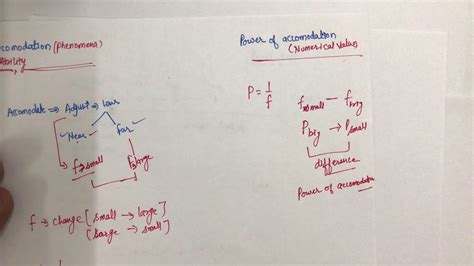 ccomodation (Phenomena)
Ability
Accomodate ⇒ Adjust ⇒ lens
✓ Near ✓ Far ✓
f → small f → large
f → change [small → large]
(large → small]
Power of accomodation
(Numerical value)
P = 1/f
f small — f big
P big → P small
difference
Power of accomodation